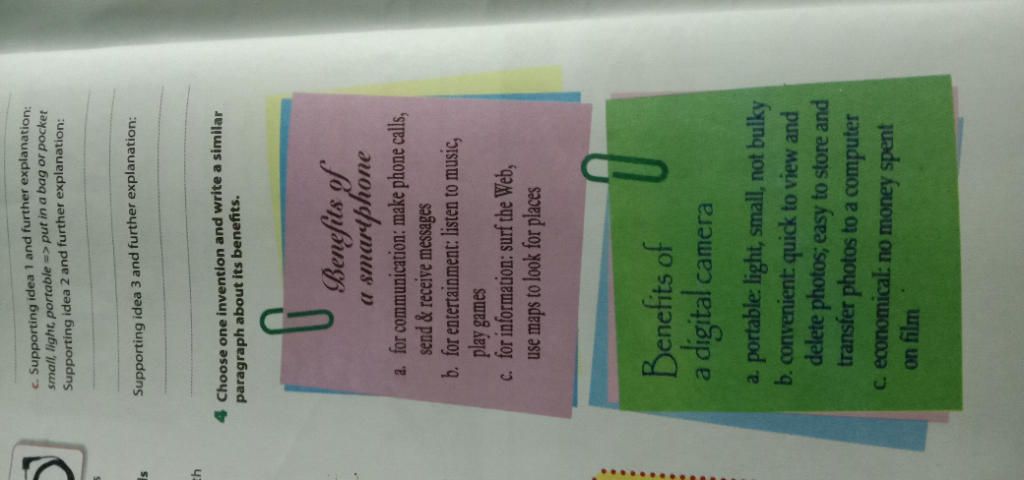 c. Supporting idea 1 and further explanation:
small, light, portable => put in a bag or pocket
Supporting idea 2 and further explanation:
Supporting idea 3 and further explanation:
4 Choose one invention and write a similar
paragraph about its benefits.
Benefits of
a smartphone
a. for communication: make phone calls,
send & receive messages
b. for entertainment: listen to music,
play games
c. for information: surf the Web,
use maps to look for places
Benefits of
a digital camera
a. portable: light, small, not bulky
b. convenient: quick to view and
delete photos; easy to store and
transfer photos to a computer
c. economical: no money spent
on film